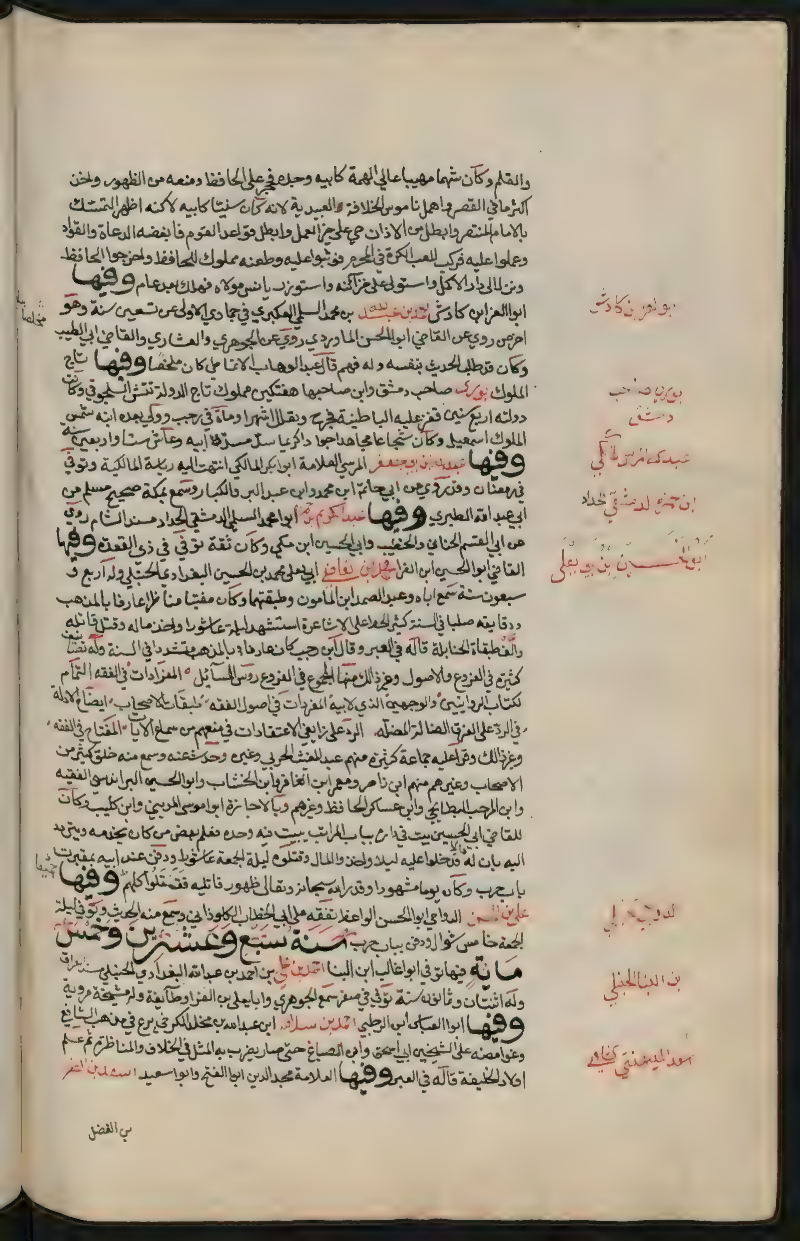 والقلم وكان شهما مهيبا عالي الهمة كابيه وجده فحجر على الحافظ ومنعه من الظهور واخذ
اكثر ما في القصر واهمل ناموس الخلافة العبيدية لانه كان سنيا كابيه لاكنه اظهر التمسك
بالامام المنتصر وابطل من الاذان حي على خير العمل وابطل قواعد القوم فابغضه الدعاة والقواد
وعملوا عليه فركب للعب الكرة في المحرم فوثبوا عليه وطعنه مملوك للحافظ واخرجوا الحافظ
ونزل الى دار الاكمل واستولى على خزائنه واستوزر يانس مولاه فهلك بعد عام وفيها
ابو العز ابن كادش احمد بن عبيد الله بن محمد السلمي العكبري في جمادي الاولى عن تسعين سنة وهو
اخر من روى عن القاضي ابو الحسن الماوردي روى عن الجوهري والعشاري والقاضي ابي الطيب
وكان قد طلب الحديث بنفسه وله فهم قال عبد الوهاب الانماطي كان مخلطا وفيها تاج
الملوك بوري صاحب دمشق وابن صاحبها طغتكين مملوك تاج الدولة تتش السلجوقي وكانت
دولته اربع سنين قفز عليه الباطنية فجرح وبقا اشهرا ومات في رجب وولي بعده ابنه شمس
الملوك اسمعيل وكان شجاعا مجاهدا جوادا كريما سد مسد ابيه وعاش ستا واربعين سنة
وفيها عبد الله ابن ابي جعفر المرسي العلامة ابو بكر المالكي انتهت اليه رياسة المالكية وتوفي
في رمضان وقد روى عن ابي حاتم ابن محمد وابن عبد البر والكبار وسمع بمكة صحيح مسلم من
ابي عبد الله الطبري وفيها عبد الكريم بن حمزة ابو محمد السلمي الدمشقي الحداد مسند الشام روى
عن ابي القسم الحنائي والخطيب وابي الحسين ابن مكي وكان ثقة توفي في ذي القعدة وفيها
القاضي ابو الحسين ابن الفرا محمد بن القاضي ابي يعلى محمد بن الحسين البغدادي الحنبلي وله اربع و
سبعون سنة سمع اباه وعبد الصمد ابن المامون وطبقتهما وكان مفتيا مناظرا عارفا بالمذهب
ودقايقه صلبا في السنة كثير الحط على الاشاعرة استشهد ليلة عاشورا واخذ ماله وقتل قاتله
والف طبقات الحنابلة قاله في العبر وقال ابن رجب كان عارفا بالمذهب متشددا في السنة وله تصانيف
كثيرة في الفروع والاصول وغير ذلك منها المجموع في الفروع روس المسآئل المفردات في الفقه التمام
لكتاب الروايتين والوجهين الذي لابيه المفردات في اصول الفقه طبقات الاصحاب ايضاح الادلة
في الرد على الفرق الضالة المضلة الرد على زايغي الاعتقادات في منعهم من سماع الآيات المفتاح في الفقه
وغير ذلك وقرا عليه جماعة كثيرة منهم عبد المغيث الحربي وغيره وحدث عنه وسمع منه خلق كثير من
الاصحاب وغيرهم منهم ابن ناصر ومعمر ابن الفاخر وابن الخشاب وابو الحسين البراندسي الفقيه
وابن المرحب البطايحي وابن عساكر الحافظ وغيرهم وبالاجازة ابو موسى المديني وابن كليب وكان
للقاضي ابي الحسين بيت في داره بباب المراتب يبيت فيه وحده فعلم بعض من كان يخدمه ويتردد
اليه بان له مالا فدخلوا عليه ليلا واخذ المال وقتلوه ليلة الجمعة عاشورا ودفن عند ابيه بمقبرة
باب حرب وكان يوما مشهودا وقدر الله سبحانه وتعالى ظهور قاتليه فقتلوا كلهم وفيها
علي بن الحسن الدواحي ابو الحسن الواعظ تفقه على ابي الخطاب الكلوذاني وسمع منه الحديث وتوفي ليلة
الجمعة خامس شوال ودفن بباب حرب سنة سبع وعشرين وخمس
ماية فيها توفي ابو غالب ابن البنا احمد بن علي بن احمد بن عبد الله البغدادي الحنبلي مسند العراق
وله اثنتان وثمانون سنة توفي في صفر سمع الجوهري وابا يعلى بن الفرا وطآئفة وله مشيخة مروية
وفيها ابو العباس ابن الرطبي احمد بن سلامة ابن عبد الله بن مخلد الكرخي برع في مذهب الشافعي
وغوامضه على الشيخين ابي اسحق وابن الصباغ حتى صار يضرب به المثل في الخلاف والمناظرة ثم علم
اولاد الخليفة قاله في العبر وفيها العلامة مجد الدين ابو الفتح وابو سعيد اسعد بن ابي نصر
بن الفضل
ابو العز بن كادش
بوري صاحب
دمشق
عبد الله المرسي المالكي
ابن حمزة الدمشقي الحداد
ابو الحسين بن ابو يعلى
ابن البنا الحنبلي
اسعد الميهني الشافعي